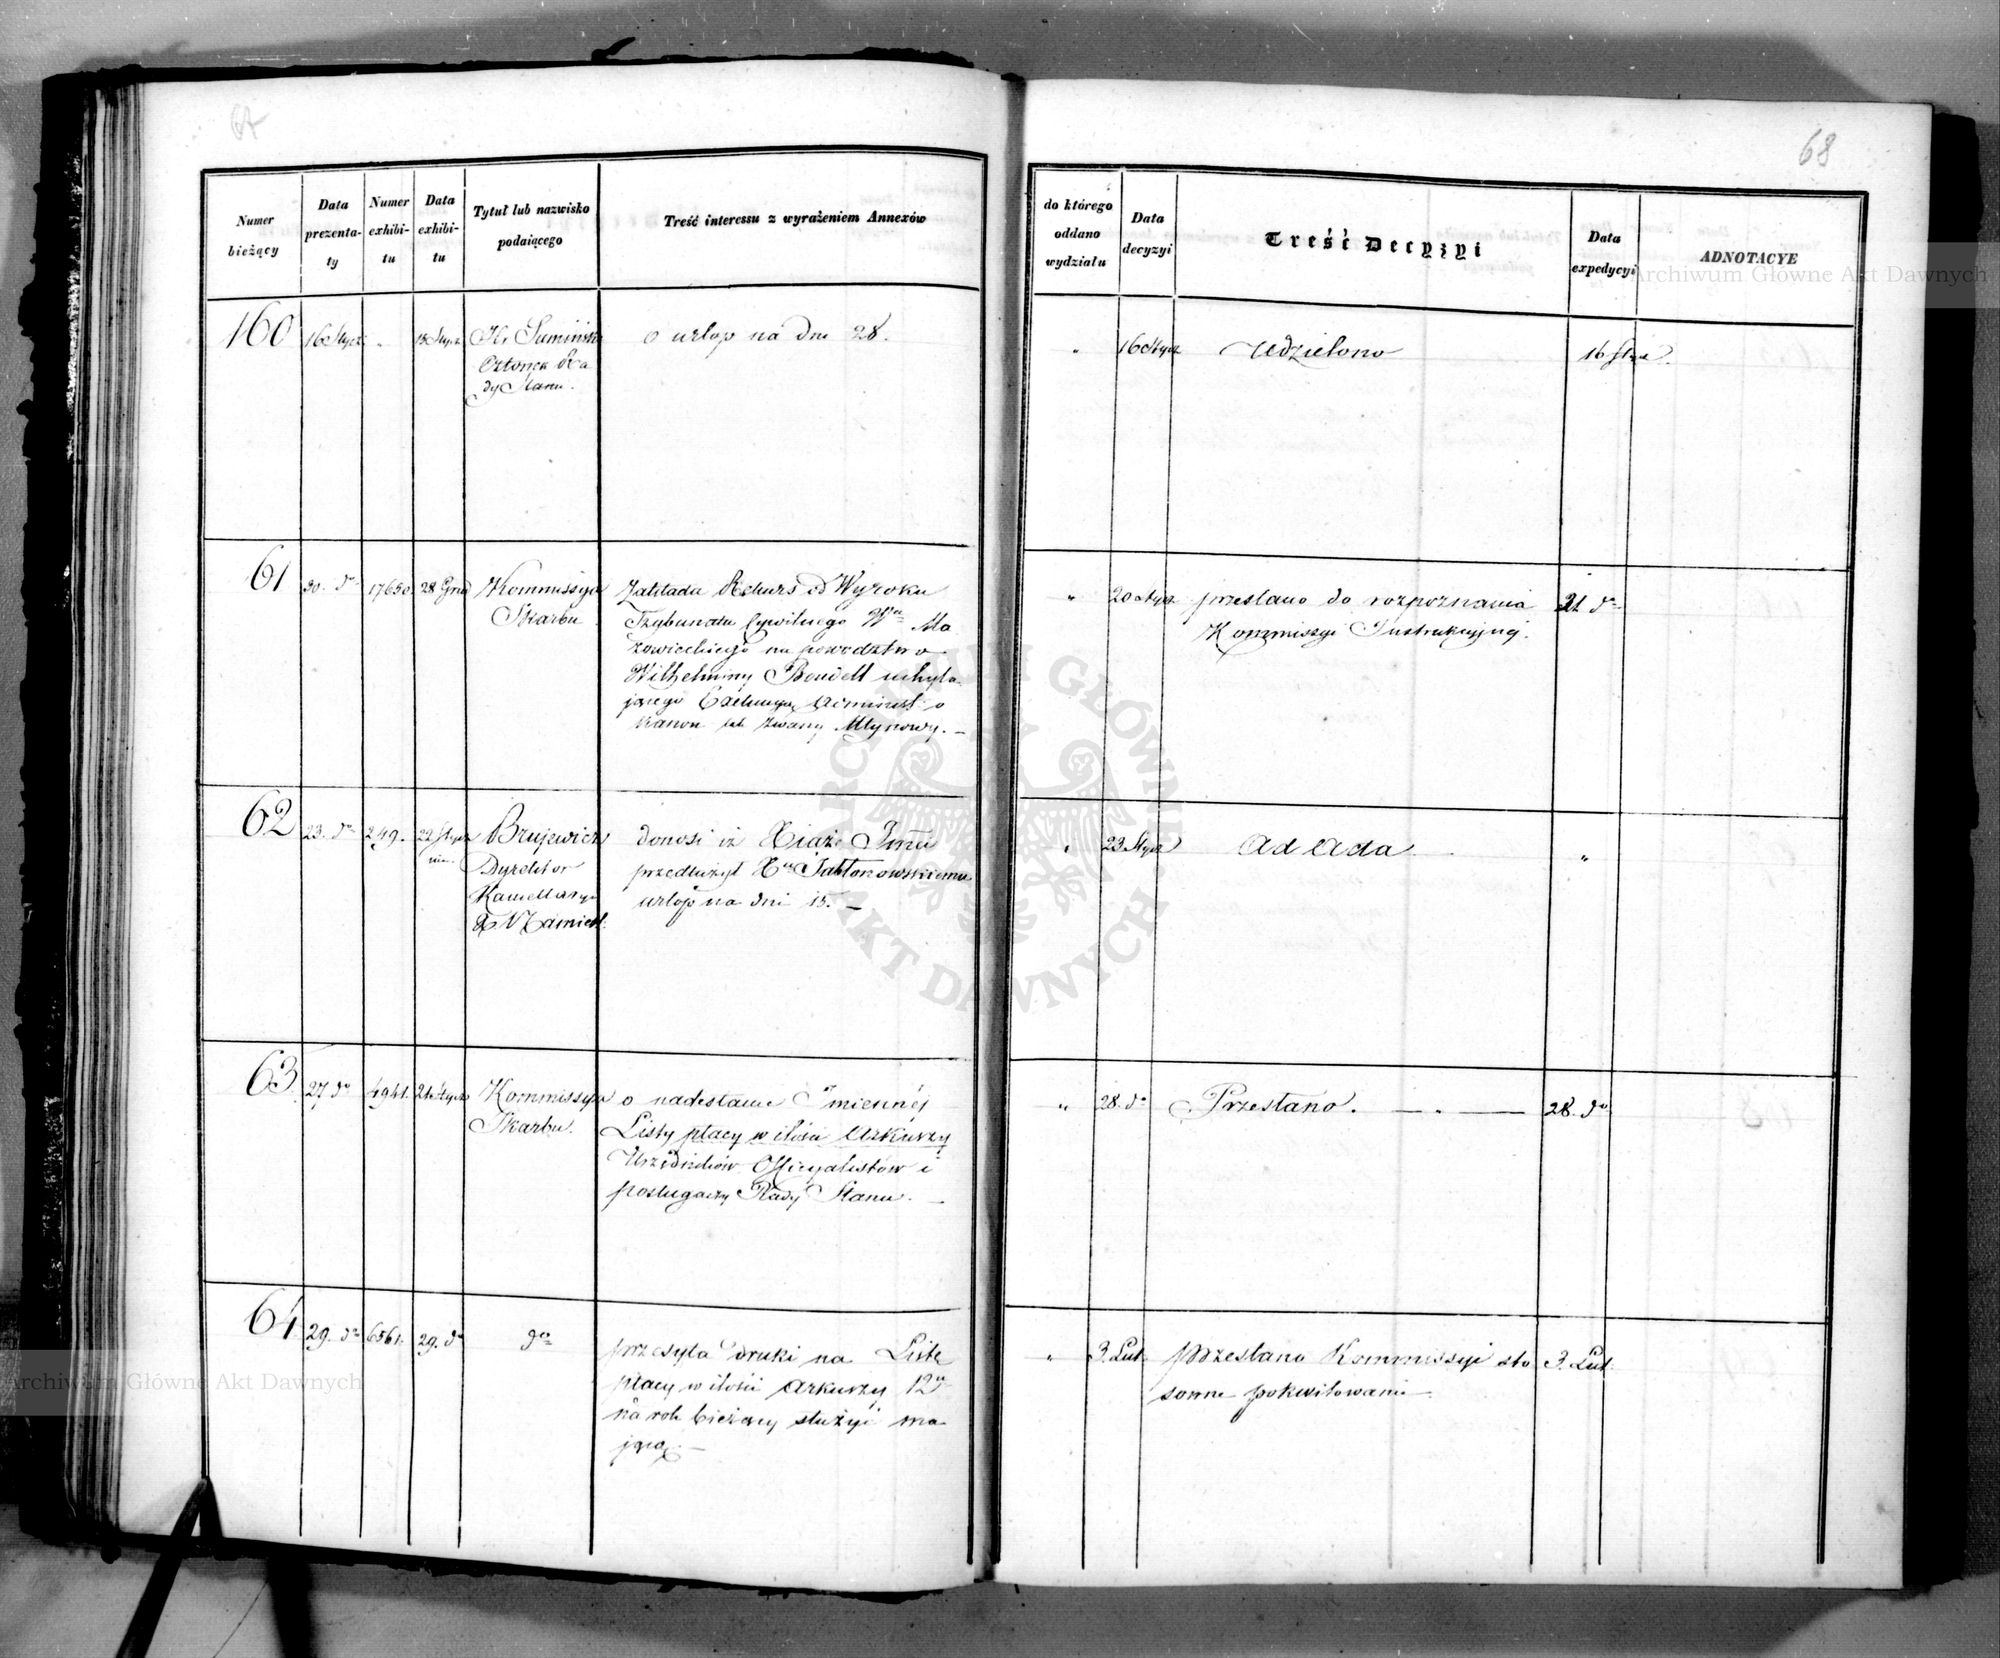 68
Numer
bieżący
Data
prezenta-
ty
Numer
exhibi-
tu
Data
exhibi-
tu
Tytuł lub nazwisko
podaiącego
Treść interessu z wyrażeniem Annexów
do którego
oddano
wydziału
Data
decyzyi
Treść Decyzyi
Data
expedycyi
ADNOTACYE
160
16 Stycz
"
Członek Ra
dy Stanu.
o urlop na dni 28.
"
16 Stycz
Udzielono
16
61
30. do
17650.
28 Grud
Kommissya
Skarbu
Zakłada Rekurs od Wyroku
Trybunału Cywilnego Wa Ma
zowieckiego na powodztwo
Wilhelminy uchyla-
jącego o
Kanon tak zwany Młynowy. —
"
20 Stycz
przesłano do rozpoznania
Kommissyi Instrukcyjnej.
21 do
62
23. do
249.
22 Stycz
nia
Dyrektor
Kancellaryi
X Namiest.
donosi iż Xiąże
przedłużył Jabłonowskiemu
urlop na dni 15. —
"
23 Stycz
ad Acta
"
63
27 do
4941.
24 Stycz
Kommissya
Skarbu.
o nadesłanie Imiennéj
Listy płacy w ilości Arkuszy
Urzędników Officyalistów i
posługaczy Rady Stanu. —
"
28. do
Przesłano.
28. do
64
29. do
6561.
29. do
do
przesyła druki na Listę
płacy w ilości arkuszy 12
na rok bieżący służyć ma
jące. —
"
3. Lut.
przesłano Kommissyi sto
sowne pokwitowanie
3. Lut.
Archiwum Główne Akt Dawnych
Archiwum Główne Akt Dawnych
ARCHIWUM GŁÓWNE AKT DAWNYCH